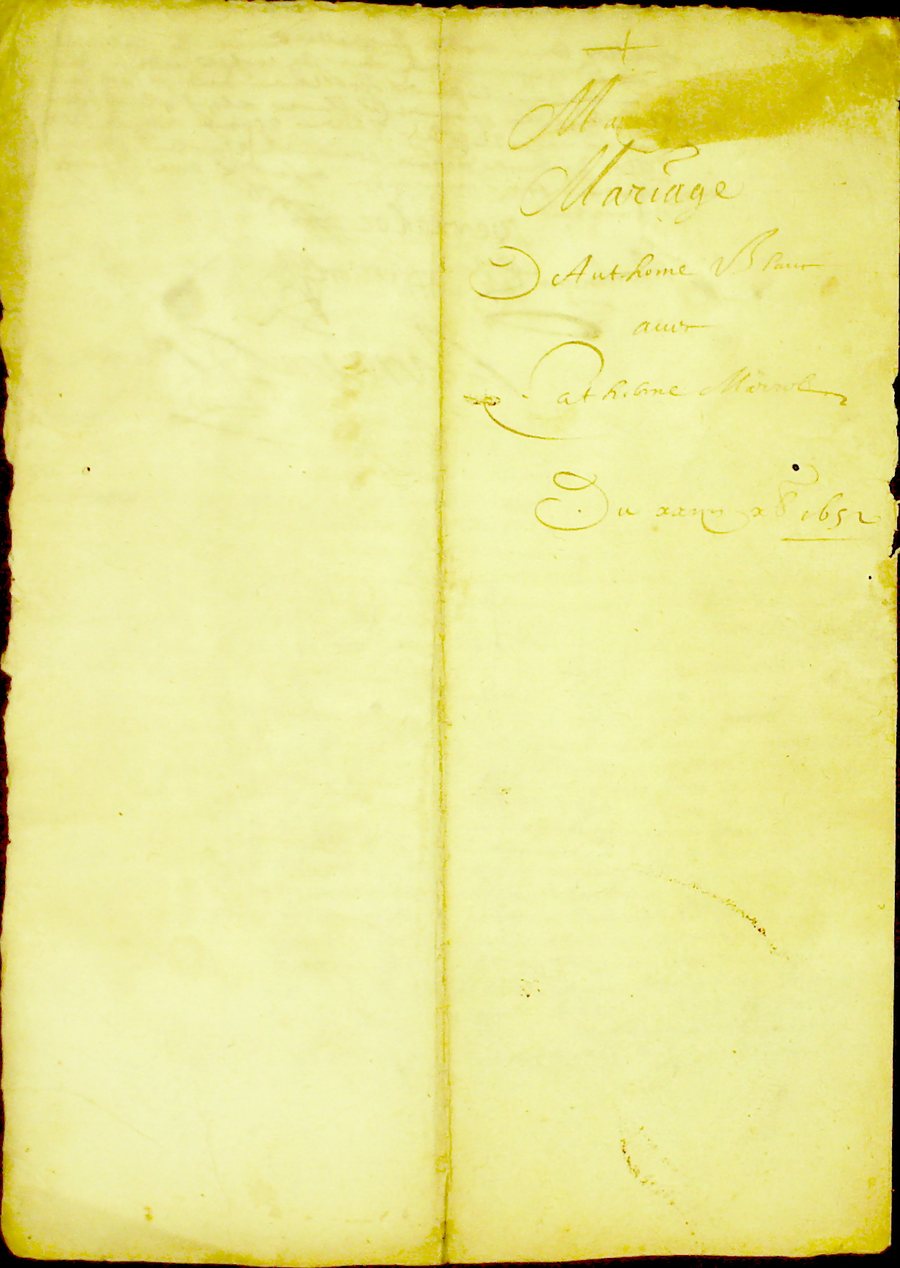 Ma
Mariage
D Anthoine Blanc
avec
Catherine
Du xbre 1652